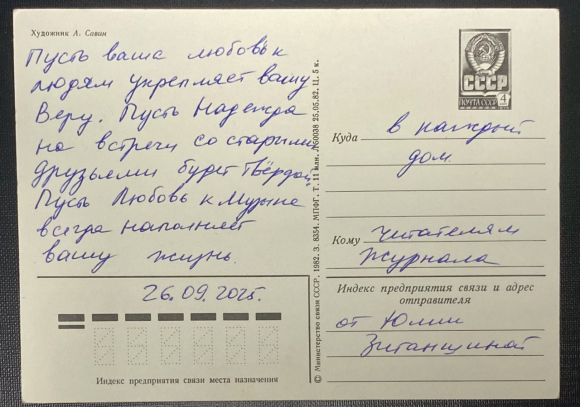 Художник А. Савин
Пусть ваша любовь к
людям укрепляет вашу
Веру. Пусть Надежда
на встречи со старыми
друзьями будет Твёрдой.
Пусть Любовь к Музыке
всегда наполняет
вашу жизнь.
26.09.2025.
Индекс предприятия связи места назначения
© Министерство связи СССР, 1982. З. 8354. МПФГ. Т. 11 млн. Л60038 25.05.82. Ц. 5 к.
СССР
ПОЧТА СССР 4
Куда в каждый
дом
Кому читателям
журнала
Индекс предприятия связи и адрес
отправителя
от Юлии